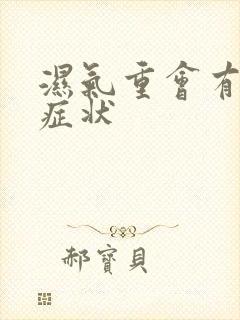 濕氣重會有
症状
郝寶貝